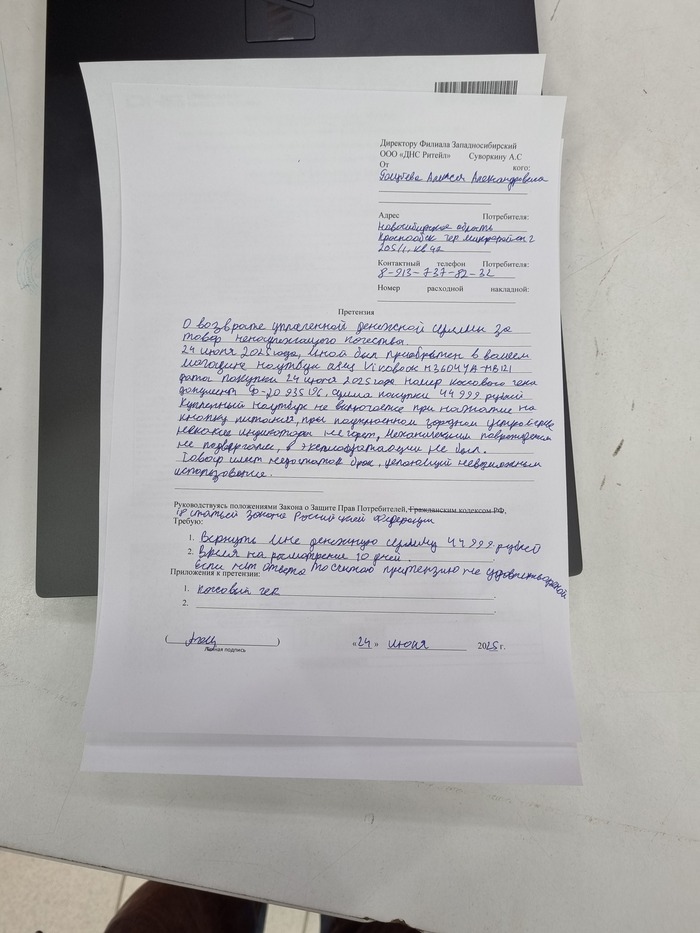 Директору Филиала Западносибирский
ООО «ДНС Ритейл» Суворкину А.С
От кого:
Алексея Александровича
Адрес Потребителя:
Новосибирская область
Краснообск тер микрорайон 2
205/1, кв 42
Контактный телефон Потребителя:
8-913-737-82-32
Номер расходной накладной:
Претензия
О возврате уплаченной денежной суммы за
товар ненадлежащего качества.
24 июня 2025 года, мной был приобретен в вашем
магазине ноутбук asus Vivobook M3604YA-MB121
дата покупки 24 июня 2025 года номер кассового чека
документ Ф-20935196, сумма покупки 44 999 рублей
Купленный ноутбук не включается при нажатие на
кнопку питания, при подключенном зарядном устройстве
никакие индикаторы не горят, Механическим повреждениям
не подвергался, в эксплоатации не был.
Товар имеет недостаток брак, делающий невозможным
использование.
Руководствуясь положениями Закона о Защите Прав Потребителей, Гражданским кодексом РФ,
18 статьей Закона Российской Федерации
Требую:
1. Вернуть мне денежную сумму 44 999 рублей
2. Время на расмотрение 10 дней.
если нет ответа то считаю притензию не удовлетворенной
Приложения к претензии:
1. Кассовый чек
2.
Личная подпись
«24» июня 2025 г.